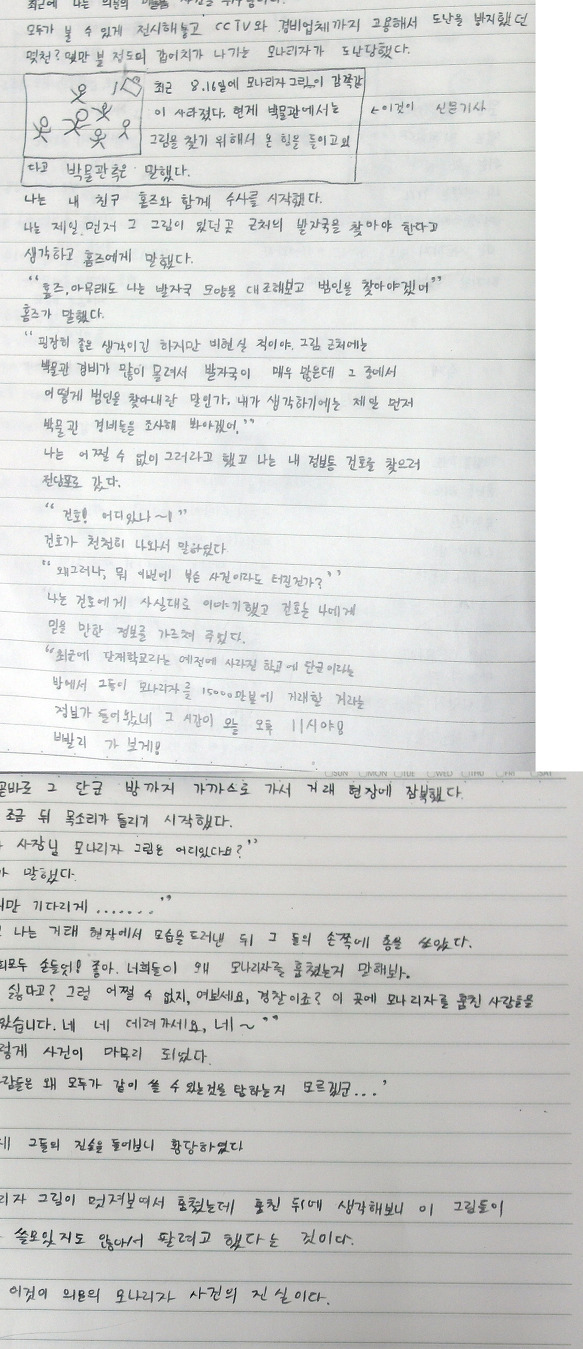 최근에 나는 의문의
모두가 볼 수 있게 전시해놓고 CCTV와 경비업체까지 고용해서 도난을 방지했던
몇천? 몇만 불 정도의 값어치가 나가는 모나리자가 도난당했다.
최근 8.16일에 모나리자 그림이 감쪽같
이 사라졌다. 현재 박물관에서는
←이것이 신문기사
그림을 찾기 위해서 온 힘을 들이고있
다고 박물관측은 말했다.
나는 내 친구 홈즈와 함께 수사를 시작했다.
나는 제일 먼저 그 그림이 있던곳 근처의 발자국을 찾아야 한다고
생각하고 홈즈에게 말했다.
"홈즈, 아무래도 나는 발자국 모양을 대조해보고 범인을 찾아야겠어"
홈즈가 말했다.
"굉장히 좋은 생각이긴 하지만 비현실 적이야. 그림 근처에는
박물관 경비가 많이 몰려서 발자국이 매우 많은데 그 중에서
어떻게 범인을 찾아내란 말인가. 내가 생각하기에는 제일 먼저
박물관 경비들을 조사해 봐야겠어."
나는 어쩔 수 없이 그러라고 했고 나는 내 정보통 건호를 찾으러
전당포로 갔다.
"건호! 어디있나~!"
건호가 천천히 나와서 말하였다
"왜그러나, 뭐 이번에 무슨 사건이라도 터진건가?"
나는 건호에게 사실대로 이야기했고 건호는 나에게
믿을 만한 정보를 가르쳐 주었다.
"최근에 단계학교라는 예전에 사라진 학교에 단군이라는
방에서 그들이 모나리자를 15000만불에 거래할 거라는
정보가 들어왔네 그 시간이 오늘 오후 11시야!
빨리 가 보게!
곧바로 그 단군 방까지 가까스로 가서 거래 현장에 잠복했다.
조금 뒤 목소리가 들리기 시작했다.
사장님 모나리자 그림은 어디있다요?"
가 말했다.
만 기다리게 ........"
나는 거래 현장에서 모습을 드러낸 뒤 그 들의 손쪽에 총을 쏘았다.
희모두 손들어! 좋아. 너희들이 왜 모나리자를 훔쳤는지 말해봐.
싫다고? 그럼 어쩔 수 없지, 여보세요, 경찰이죠? 이 곳에 모나리자를 훔친 사람들을
았습니다. 네 네 데려가세요, 네~"
렇게 사건이 마무리 되었다.
람들은 왜 모두가 같이 쓸 수 있는것을 탐하는지 모르겠군...'
데 그들의 진술을 들어보니 황당하였다
리자 그림이 멋져보여서 훔쳤는데 훔친 뒤에 생각해보니 이 그림들이
쓸모있지도 않아서 팔려고 했다는 것이다.
이것이 의문의 모나리자 사건의 진실이다.